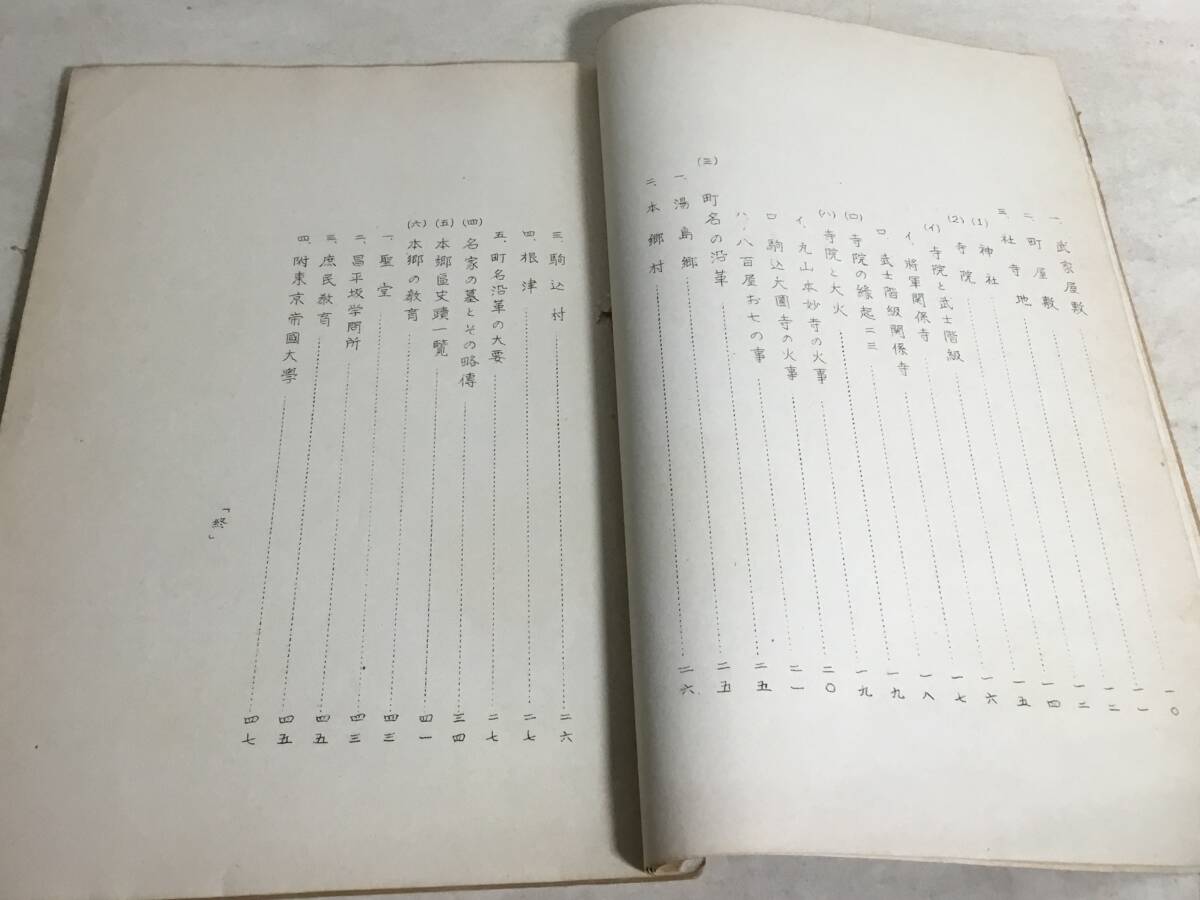 一、武家屋敷 一〇
二、町屋敷 一一
三、社寺地 一二
(1) 神社 一二
(2) 寺院 一四
(イ) 寺院と武士階級 一五
イ、将軍関係寺 一六
ロ、武士階級関係寺 一七
(ロ) 寺院の縁起二三 一八
(ハ) 寺院と大火 一九
イ、丸山本妙寺の火事 一九
ロ、駒込大圓寺の火事 二〇
ハ、八百屋お七の事 二一
(三) 町名の沿革 二五
一、湯島郷 二五
二、本郷村 二六
三、駒込村 二六
四、根津 二七
五、町名沿革の大要 二七
(四) 名家の墓とその略傳 三四
(五) 本郷區史蹟一覧 四一
(六) 本郷の教育 四三
一、聖堂 四三
二、昌平坂学問所 四五
三、庶民教育 四五
四、附東京帝國大學 四七
「終」